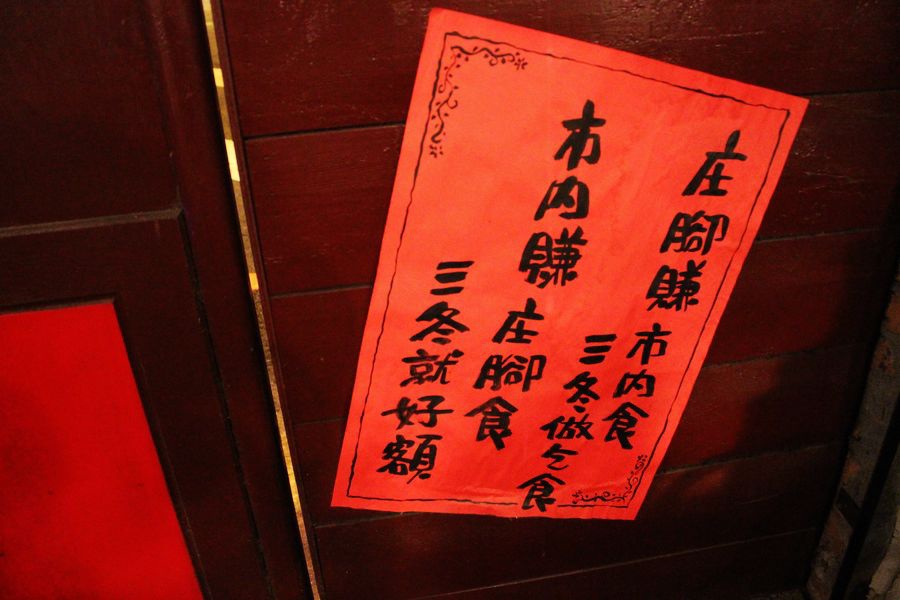 庄腳賺市內食
三冬做乞食
市內賺庄腳食
三冬就好額